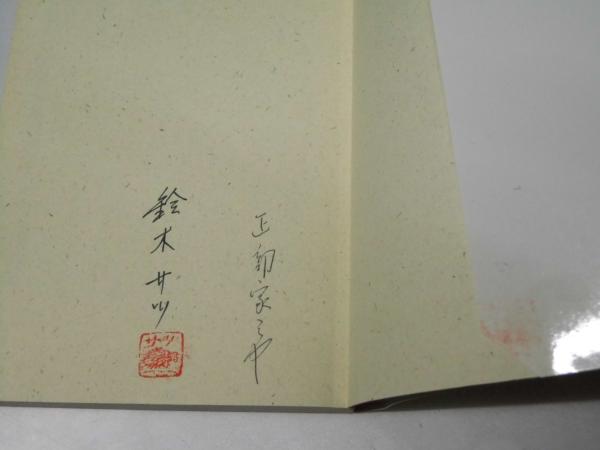 正部家ミヤ
鈴木サツ
サツ